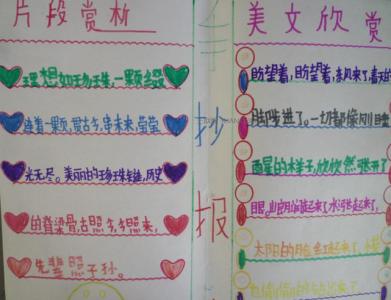 片段赏析
理想如珍珠,一颗缀
连着一颗,贯古今,串未来,莹莹
光无尽。美丽的珍珠链,历史
的脊梁骨,古照今,今照来,
先辈照子孙。
手
抄
报
美文欣赏
盼望着,盼望着,东风来了,春天的
脚步近了。一切都像刚睡
的样子,欣欣然张开了
眼。山朗润起来了,水涨起来了,
太阳的脸红起来了,